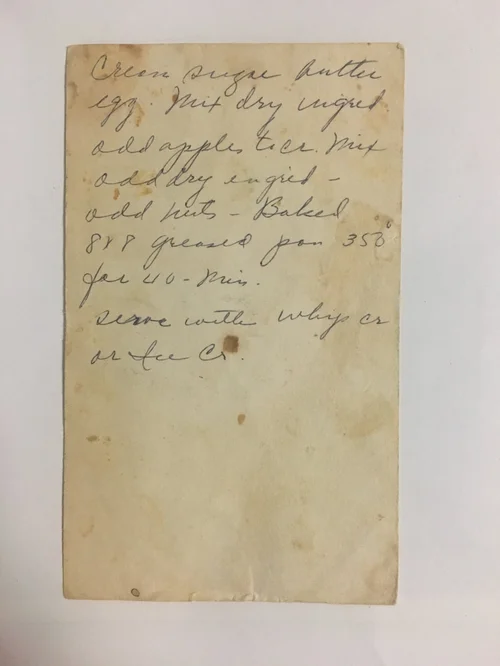 Cream sugar butter
egg. Mix dry ingred
add apples to cr. Mix
add dry engred -
add nuts - Baked
8x8 greased pan 350°
for 40 - Min.
serve with whip cr
or Ice Cr.